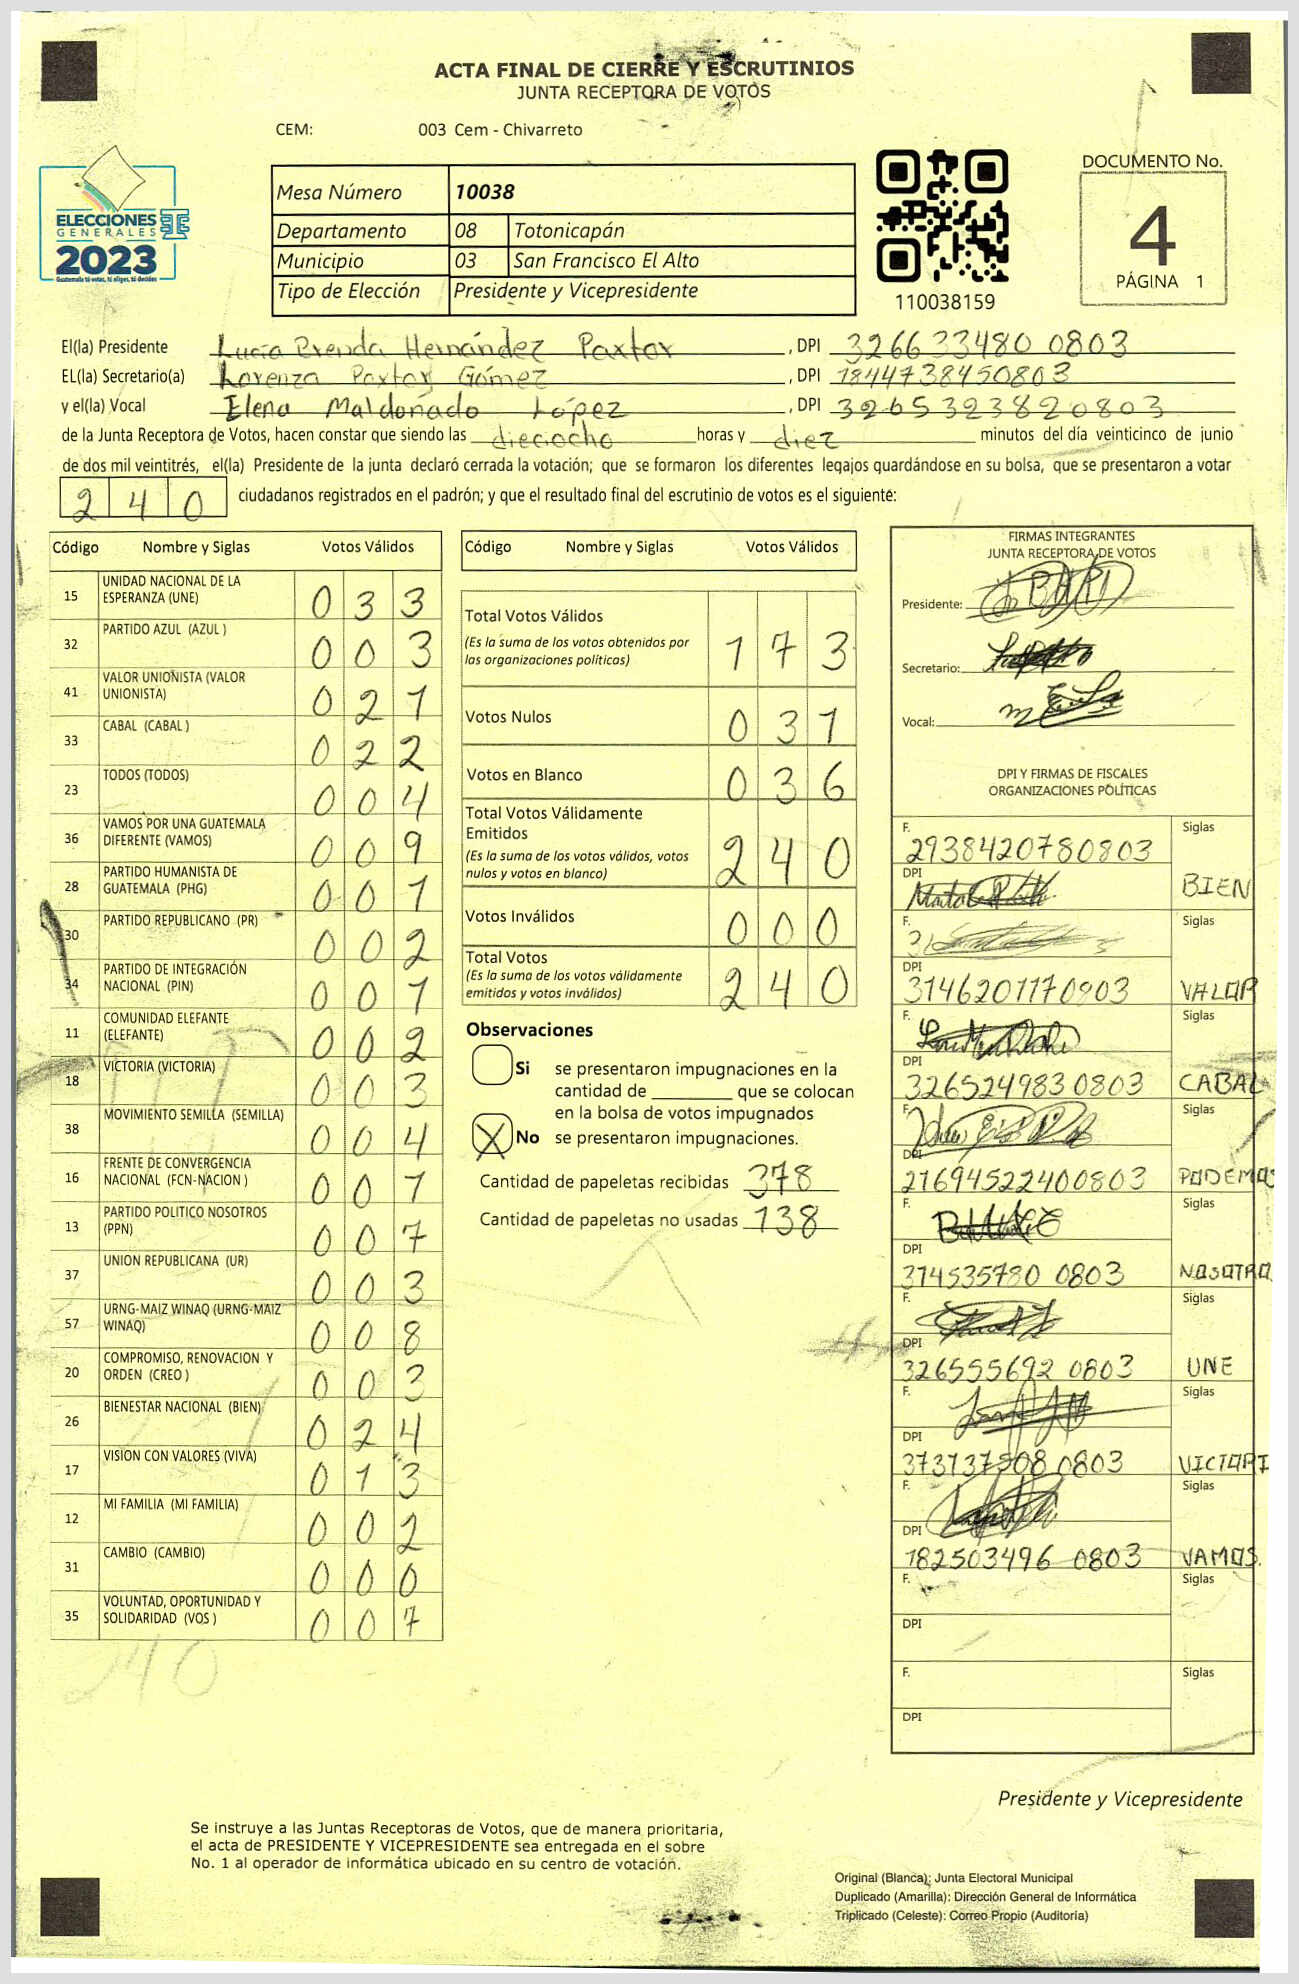 ACTA FINAL DE CIERRE Y ESCRUTINIOS
JUNTA RECEPTORA DE VOTOS
CEM: 003 Cem - Chivarreto
ELECCIONES
GENERALES
2023
Guatemala tú votas, tú eliges, tú decides
Mesa Número 10038
Departamento 08 Totonicapán
Municipio 03 San Francisco El Alto
Tipo de Elección Presidente y Vicepresidente
110038159
DOCUMENTO No.
4
PÁGINA 1
El(la) Presidente Lucía Brenda Hernández Paxtor, DPI 326633480 0803
EL(la) Secretario(a) Lorenza Paxtor Gómez, DPI 1844738450803
y el(la) Vocal Elena Maldonado López, DPI 3265323820803
de la Junta Receptora de Votos, hacen constar que siendo las dieciocho horas y diez minutos del día veinticinco de junio
de dos mil veintitrés, el(la) Presidente de la junta declaró cerrada la votación; que se formaron los diferentes legajos guardándose en su bolsa, que se presentaron a votar
240 ciudadanos registrados en el padrón; y que el resultado final del escrutinio de votos es el siguiente:
Código Nombre y Siglas Votos Válidos
15 UNIDAD NACIONAL DE LA ESPERANZA (UNE) 033
32 PARTIDO AZUL (AZUL ) 003
41 VALOR UNIONISTA (VALOR UNIONISTA) 021
33 CABAL (CABAL ) 022
23 TODOS (TODOS) 004
36 VAMOS POR UNA GUATEMALA DIFERENTE (VAMOS) 009
28 PARTIDO HUMANISTA DE GUATEMALA (PHG) 001
30 PARTIDO REPUBLICANO (PR) 002
34 PARTIDO DE INTEGRACIÓN NACIONAL (PIN) 001
11 COMUNIDAD ELEFANTE (ELEFANTE) 002
18 VICTORIA (VICTORIA) 003
38 MOVIMIENTO SEMILLA (SEMILLA) 004
16 FRENTE DE CONVERGENCIA NACIONAL (FCN-NACION ) 001
13 PARTIDO POLITICO NOSOTROS (PPN) 007
37 UNION REPUBLICANA (UR) 003
57 URNG-MAIZ WINAQ (URNG-MAIZ WINAQ) 008
20 COMPROMISO, RENOVACION Y ORDEN (CREO ) 003
26 BIENESTAR NACIONAL (BIEN) 024
17 VISION CON VALORES (VIVA) 013
12 MI FAMILIA (MI FAMILIA) 002
31 CAMBIO (CAMBIO) 000
35 VOLUNTAD, OPORTUNIDAD Y SOLIDARIDAD (VOS ) 007
Código Nombre y Siglas Votos Válidos
Total Votos Válidos 173
(Es la suma de los votos obtenidos por las organizaciones políticas)
Votos Nulos 031
Votos en Blanco 036
Total Votos Válidamente Emitidos 240
(Es la suma de los votos válidos, votos nulos y votos en blanco)
Votos Inválidos 000
Total Votos 240
(Es la suma de los votos válidamente emitidos y votos inválidos)
Observaciones
Si se presentaron impugnaciones en la
cantidad de ________ que se colocan
en la bolsa de votos impugnados
X No se presentaron impugnaciones.
Cantidad de papeletas recibidas 378
Cantidad de papeletas no usadas 138
FIRMAS INTEGRANTES
JUNTA RECEPTORA DE VOTOS
Presidente:
Secretario:
Vocal:
DPI Y FIRMAS DE FISCALES
ORGANIZACIONES POLÍTICAS
F. Siglas
2938420780803
DPI BIEN
F. Siglas
DPI
3146201170803 VALOR
F. Siglas
DPI
326524983 0803 CABAL
F. Siglas
DPI
21694522400803 PODEMOS
F. Siglas
DPI
314535780 0803 NOSOTRO
F. Siglas
DPI
326555692 0803 UNE
F. Siglas
DPI
373737508 0803 VICTORI
F. Siglas
DPI
182503496 0803 VAMOS.
F. Siglas
DPI
F. Siglas
DPI
Presidente y Vicepresidente
Se instruye a las Juntas Receptoras de Votos, que de manera prioritaria,
el acta de PRESIDENTE Y VICEPRESIDENTE sea entregada en el sobre
No. 1 al operador de informática ubicado en su centro de votación.
Original (Blanca): Junta Electoral Municipal
Duplicado (Amarilla): Dirección General de Informática
Triplicado (Celeste): Correo Propio (Auditoría)